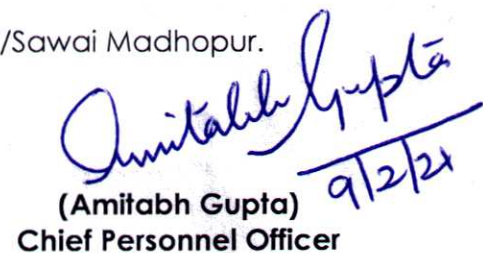 /Sawai Madhopur.
Amitabh Gupta
9/2/21
(Amitabh Gupta)
Chief Personnel Officer